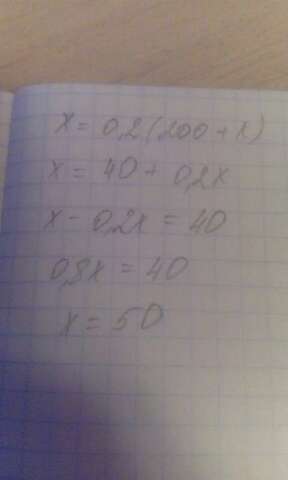 x = 0,2(200 + x)
x = 40 + 0,2x
x - 0,2x = 40
0,8x = 40
x = 50